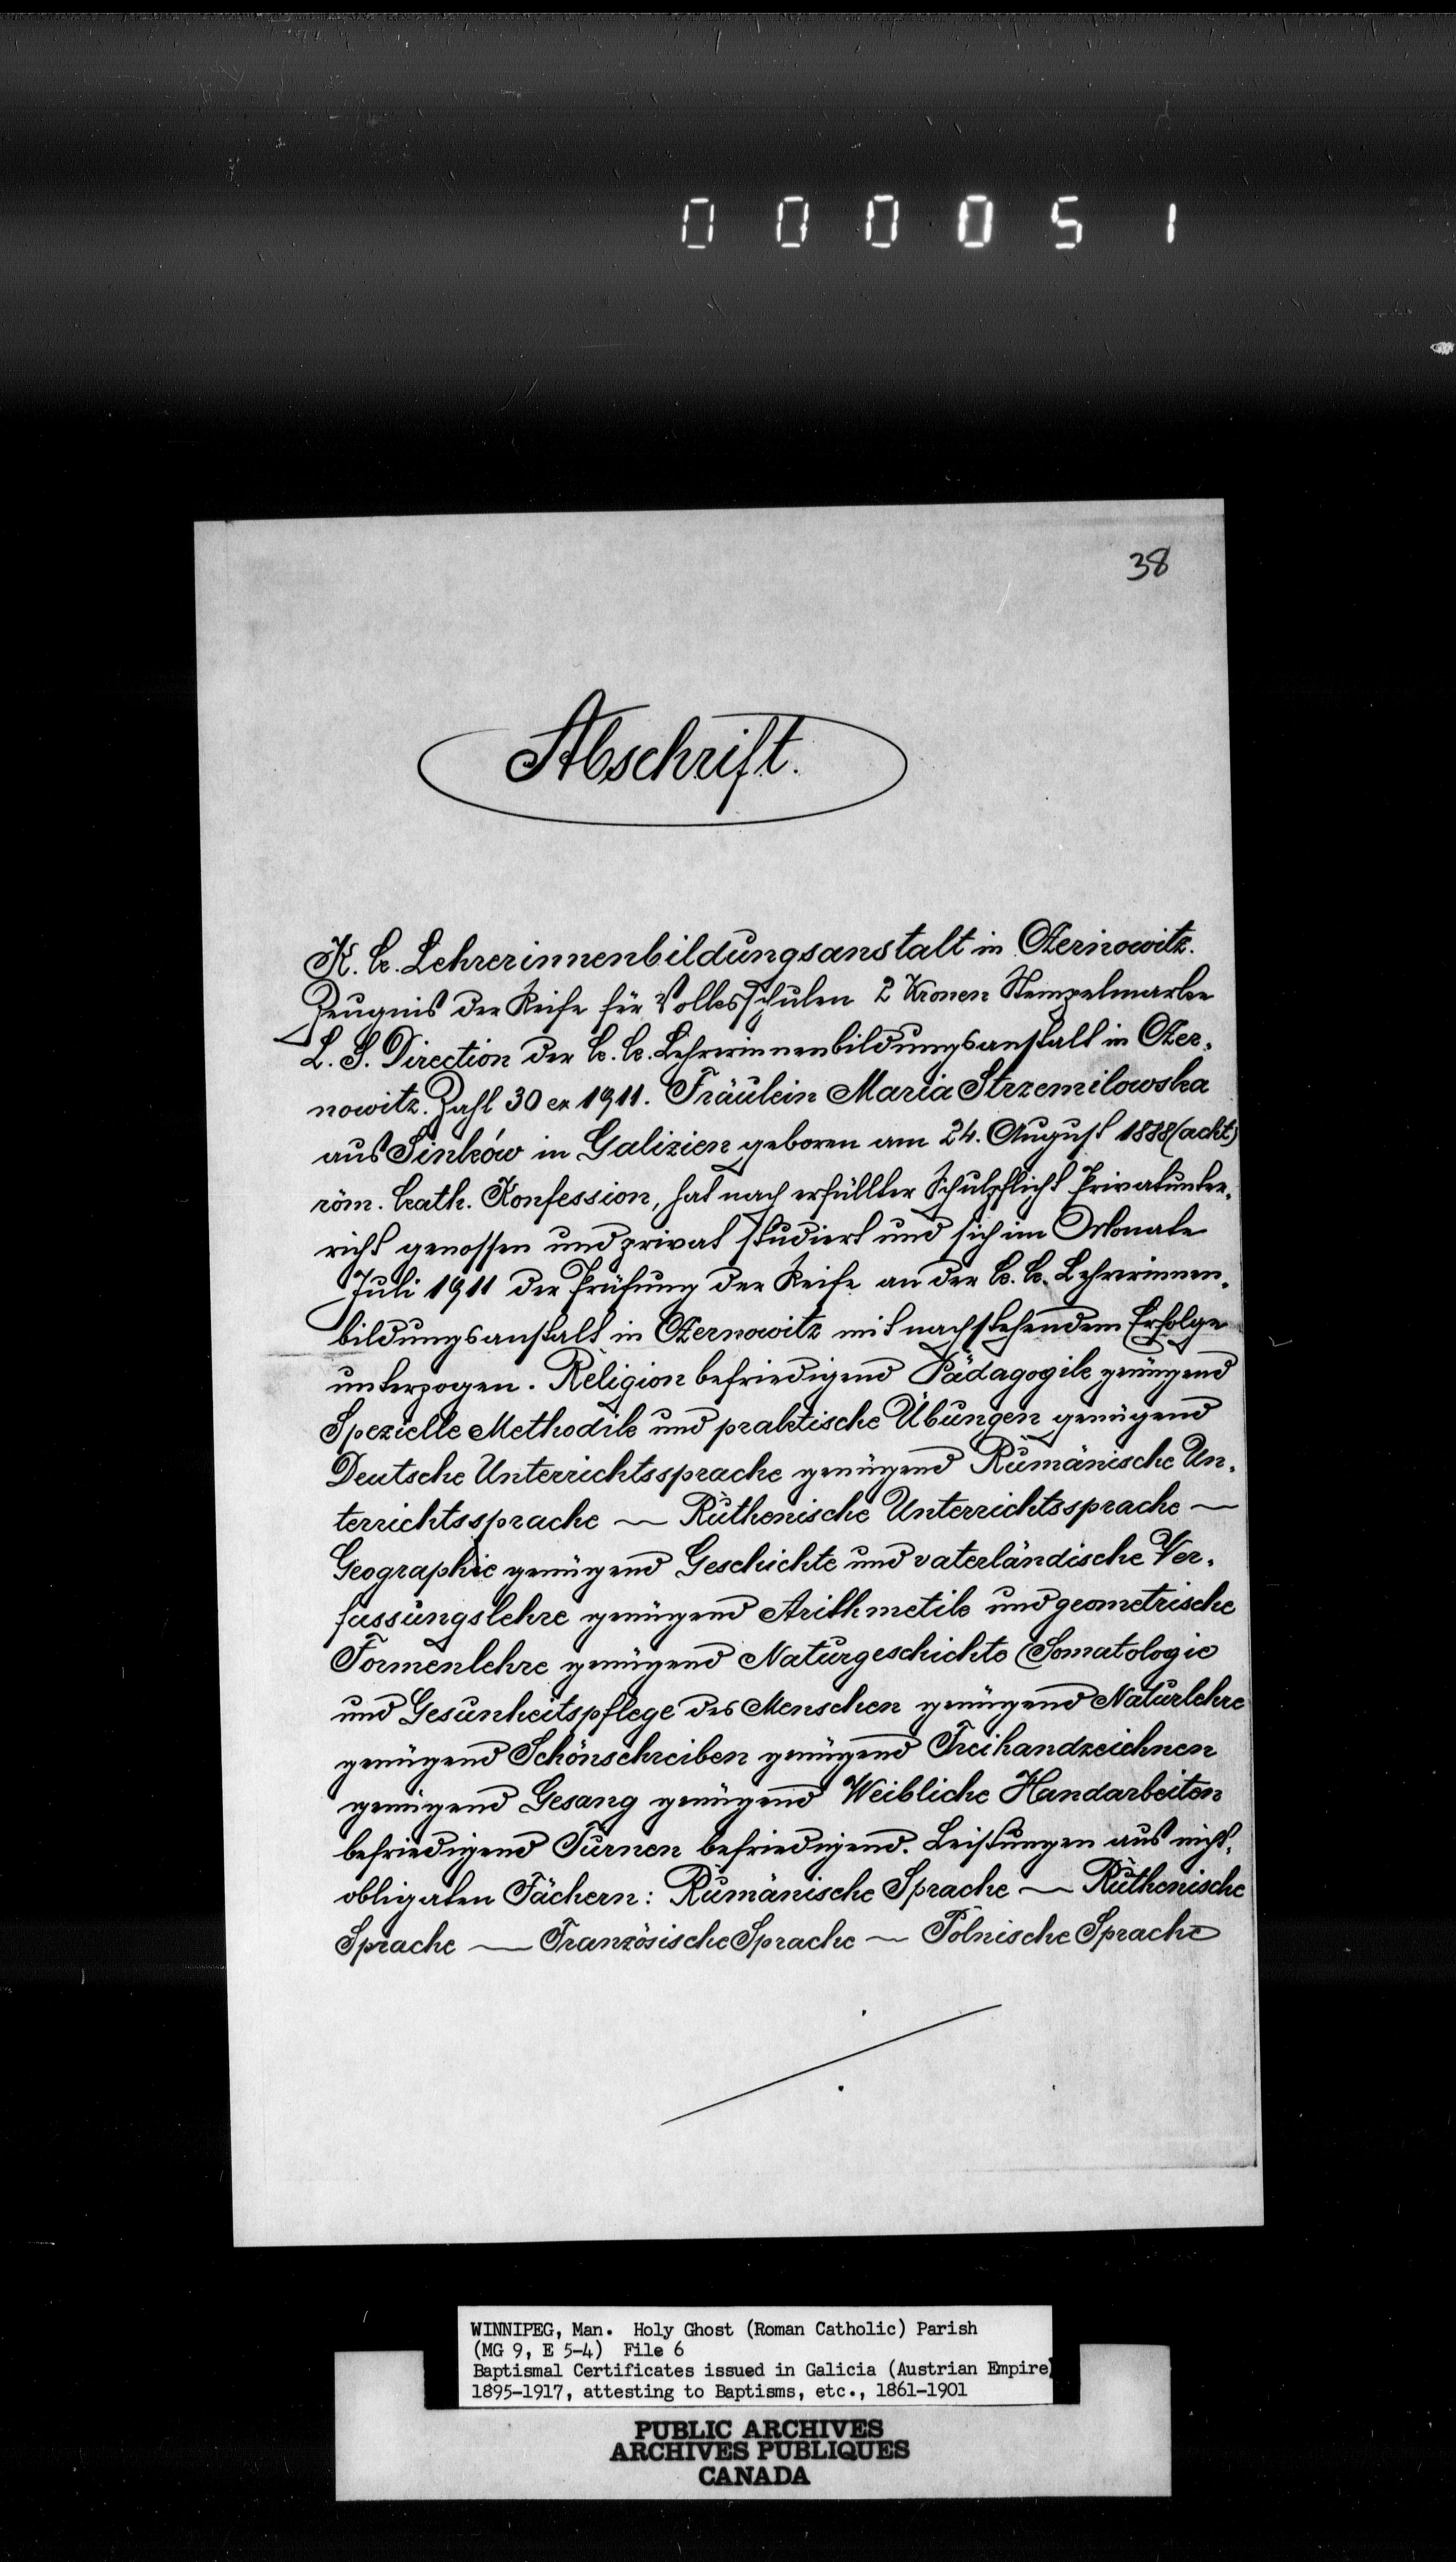 000051
38
Abschrift.
K. k. Lehrerinnenbildungsanstalt in Czernowitz.
Zeugnis der Reife für Volksschulen 2 Kronen Stempelmarke
L. S. Direction der k. k. Lehrerinnenbildungsanstalt in Czer-
nowitz. Zahl 30 ex 1911. Fräulein Maria Strzemilowska
aus Sinków in Galizien geboren am 24. August 1888 (acht)
röm. kath. Konfession, hat nach erfüllter Schulpflicht Privatunter-
richt genossen und privat studiert und sich im Monate
Juli 1911 der Prüfung der Reife an der k. k. Lehrerinnen-
bildungsanstalt in Czernowitz mit nachstehendem Erfolge
unterzogen. Religion befriedigend Pädagogik genügend
Spezielle Methodik und praktische Übungen genügend
Deutsche Unterrichtssprache genügend Rumänische Un-
terrichtssprache — Ruthenische Unterrichtssprache —
Geographie genügend Geschichte und vaterländische Ver-
fassungslehre genügend Arithmetik und geometrische
Formenlehre genügend Naturgeschichte (Somatologie
und Gesunheitspflege des Menschen genügend Naturlehre
genügend Schönschreiben genügend Freihandzeichnen
genügend Gesang genügend Weibliche Handarbeiten
befriedigend Turnen befriedigend. Leistungen aus nicht-
obligaten Fächern: Rumänische Sprache — Ruthenische
Sprache — Französische Sprache — Polnische Sprache
WINNIPEG, Man. Holy Ghost (Roman Catholic) Parish
(MG 9, E 5-4) File 6
Baptismal Certificates issued in Galicia (Austrian Empire)
1895-1917, attesting to Baptisms, etc., 1861-1901
PUBLIC ARCHIVES
ARCHIVES PUBLIQUES
CANADA